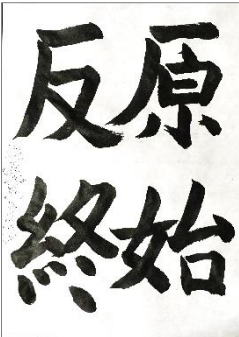 原始
反終